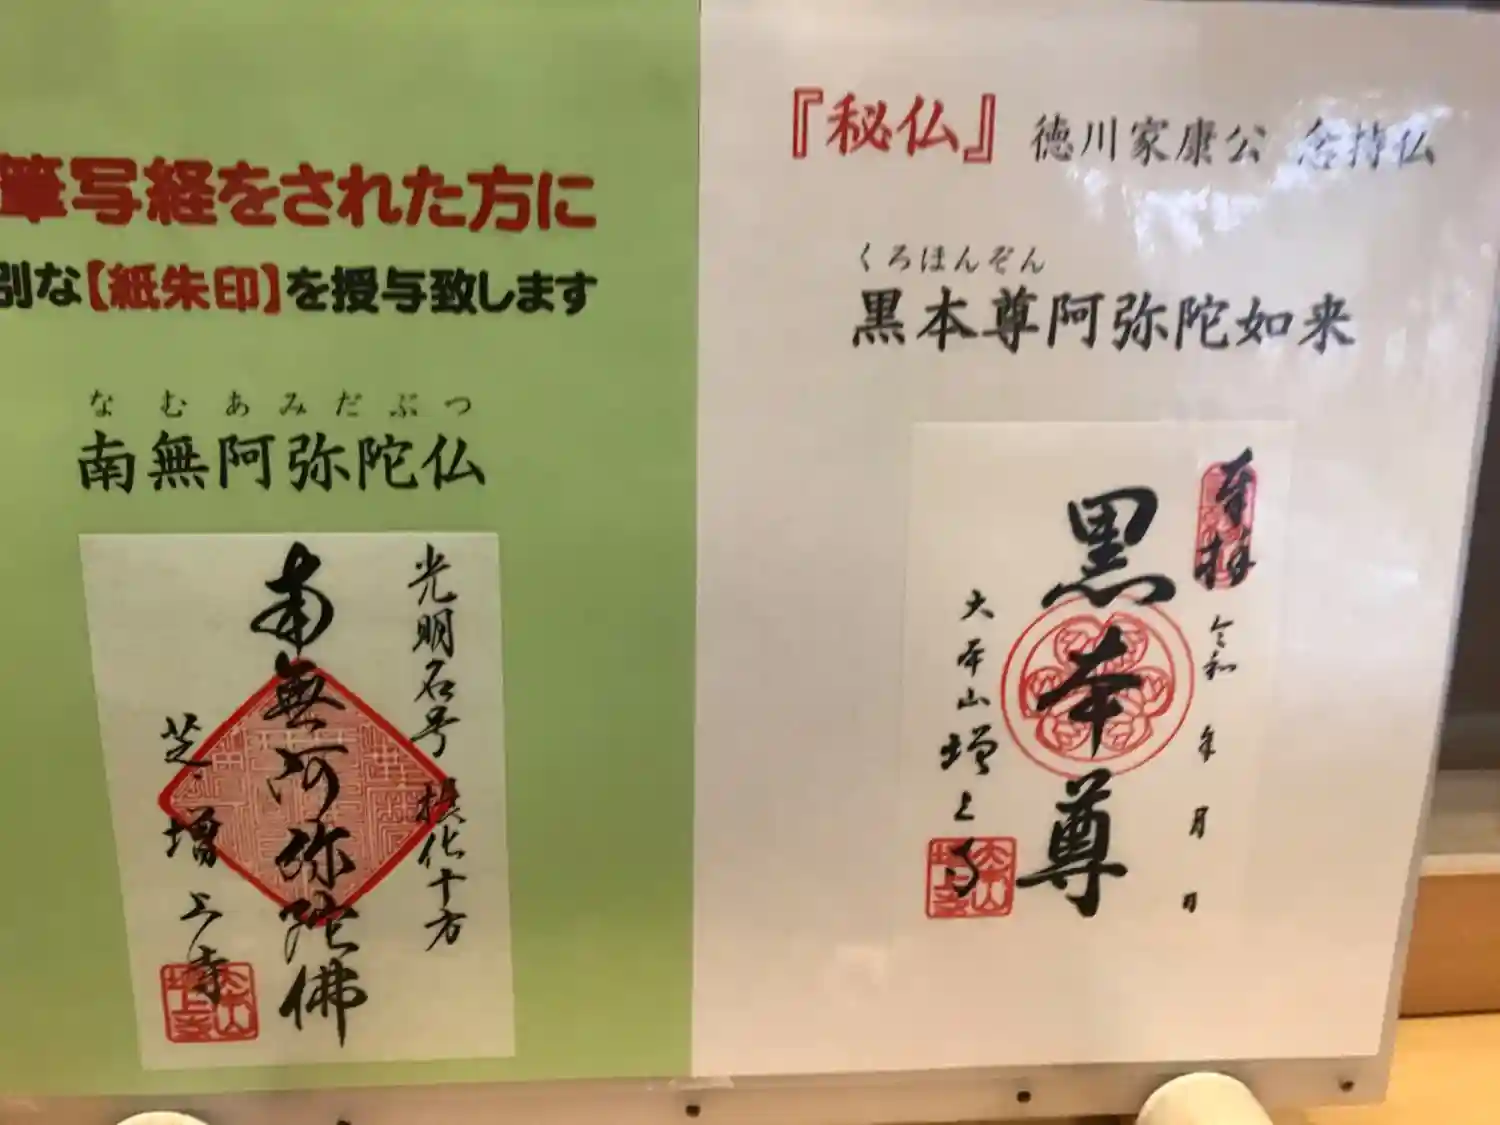 筆写経をされた方に
別な【紙朱印】を授与致します
なむあみだぶつ
南無阿弥陀仏
光明名号 摂化十方
南無阿弥陀佛
芝・増上寺
『秘仏』 徳川家康公 念持仏
くろほんぞん
黒本尊阿弥陀如来
奉拝
令和 年 月 日
黒本尊
大本山増上寺